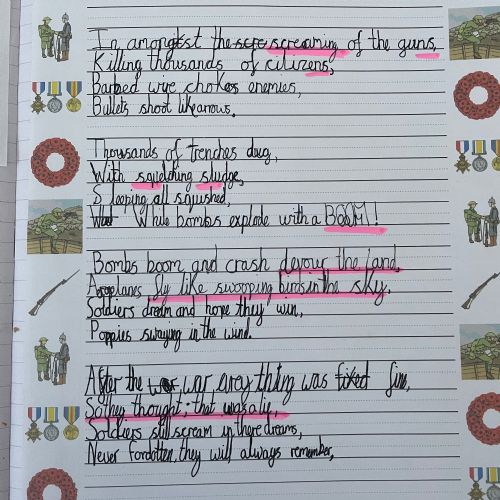 In amongst the scre screaming of the guns,
Killing thousands of citizens,
Barbed wire chokes enemies,
Bullets shoot like arrows.
Thousands of trenches dug,
With squelching sludge,
Sleeping all squished,
Wat While bombs explode with a BOOM!
Bombs boom and crash devour the land,
Aeroplanes fly like swooping birds in the sky.
Soldiers dream and hope they win,
Poppies swaying in the wind.
After the war war everything was fixed fine,
So they thought; that was a lie,
Soldiers still scream in there dreams,
Never fordotten, they will always remember,